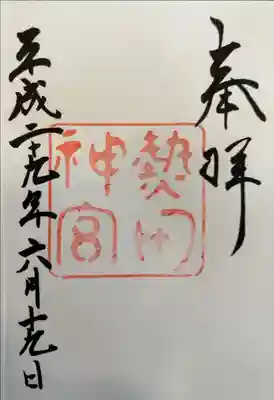 奉拝
熱田神宮
平成二十九年六月十九日